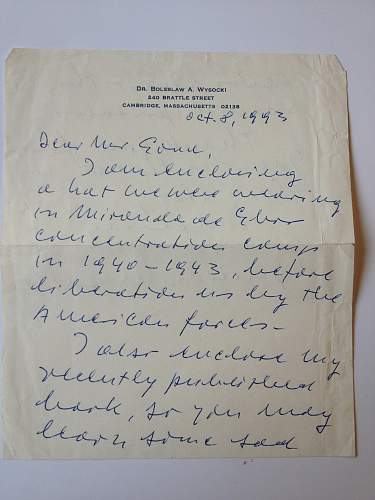 DR. BOLESLAW A. WYSOCKI
240 BRATTLE STREET
CAMBRIDGE, MASSACHUSETTS 02138
Oct. 8, 1993
Dear Mr.
I am enclosing
a hat we were wearing
in Miranda de Ebro
concentration camp
in 1940-1943, before
liberation us by the
American forces-
I also enclose my
recently published
book, so you may
learn some sad